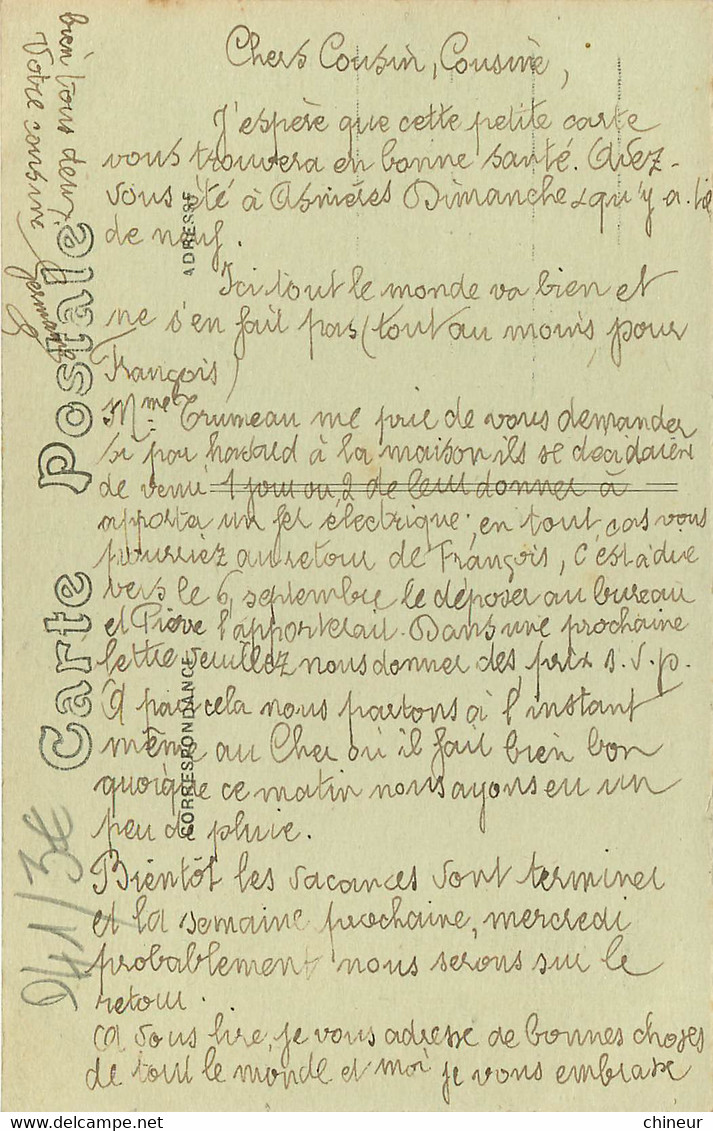 Chers Cousin, Cousine,
J'espère que cette petite carte
vous trouvera en bonne santé. Avez-
vous été à Asnières Dimanche & qu'y a-t-il
de neuf.
Ici tout le monde va bien et
ne s'en fait pas (tout au moins, pour
François)
Mme Trumeau me prie de vous demander
si par hasard à la maison ils se decidaient
de venir 1 jour ou 2 de leur donner à
apporter un fer électrique; en tout cas vous
pourriez au retour de François, c'est à dire
vers le 6 septembre le déposer au bureau
et Pierre l'apporterait. Dans une prochaine
lettre veuillez nous donner des prix s.v.p.
A part cela nous partons à l'instant
même au Cher où il fait bien bon
quoique ce matin nous ayons eu un
peu de pluie.
Bientôt les vacances vont terminer
et la semaine prochaine, mercredi
probablement nous serons sur le
retour.
A vous lire, je vous adresse de bonnes choses
de tout le monde et moi je vous embrasse
bien tous deux.
Votre cousine
Germaine
Carte Postale
CORRESPONDANCE
ADRESSE
941/3€
chineur